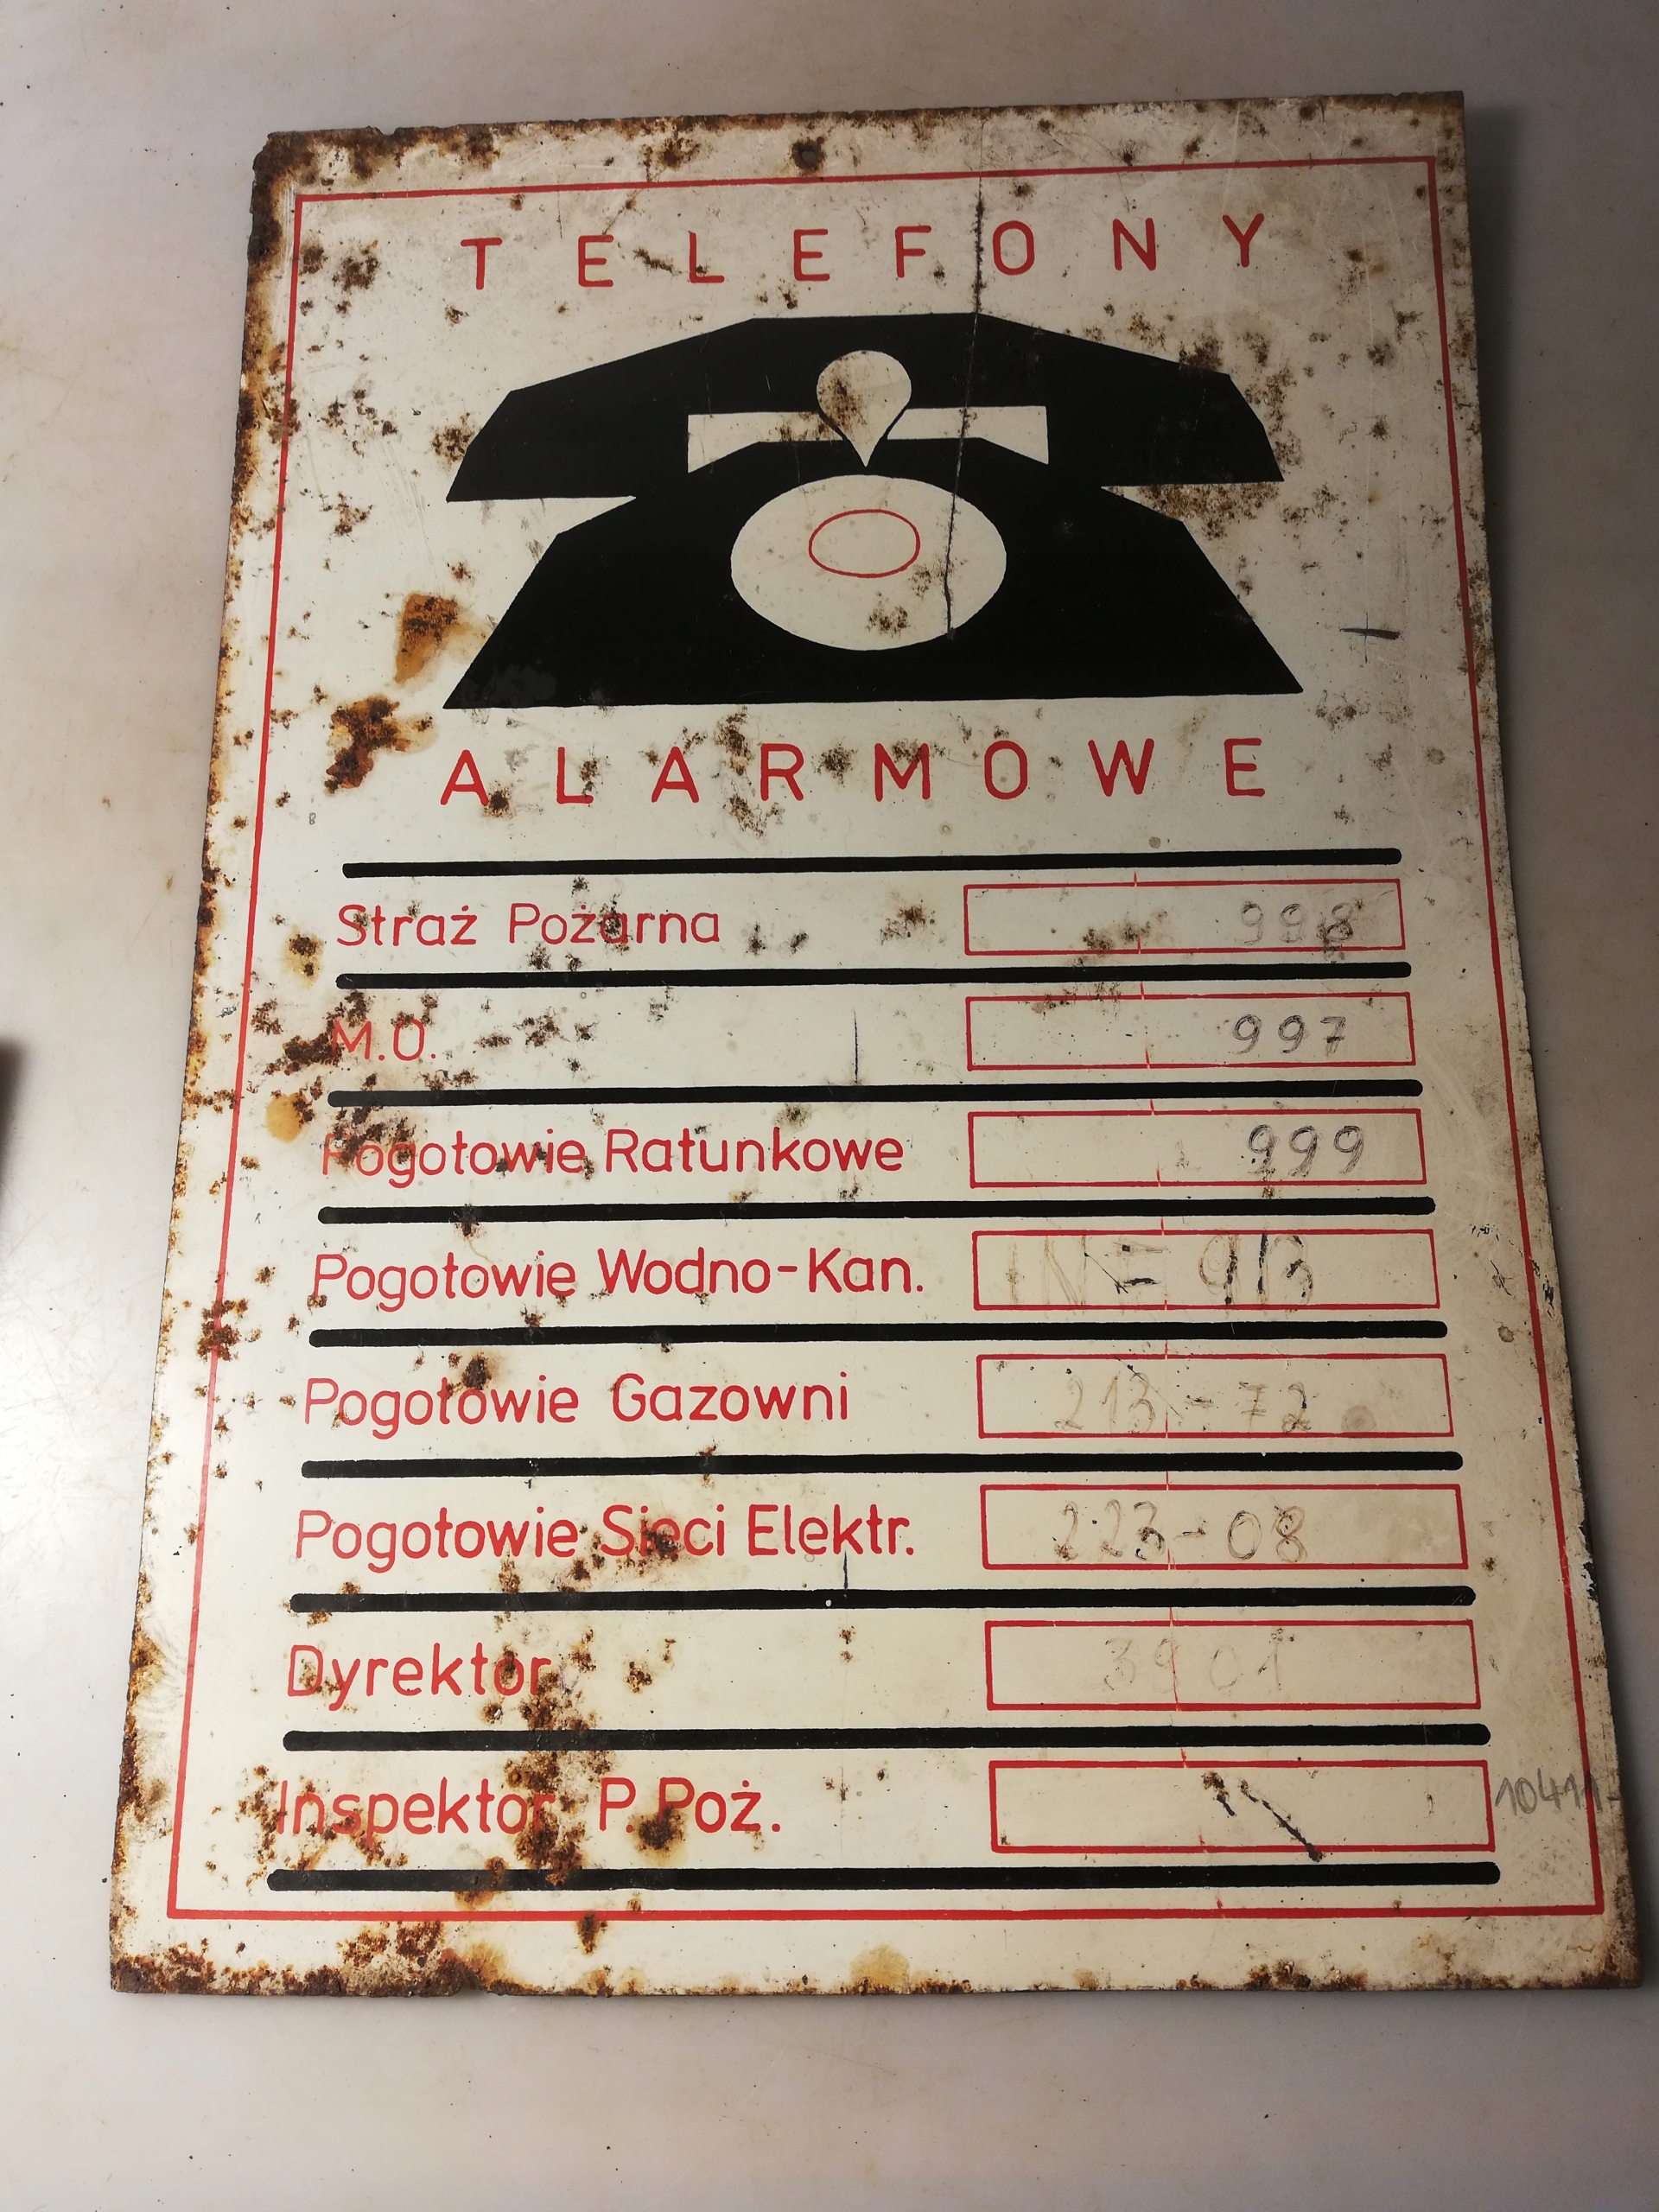 TELEFONY
ALARMOWE
Straż Pożarna 998
M.O. 997
Pogotowie Ratunkowe 999
Pogotowie Wodno-Kan. 913
Pogotowie Gazowni 213-72
Pogotowie Sieci Elektr. 223-08
Dyrektor 3901
Inspektor P. Poż.